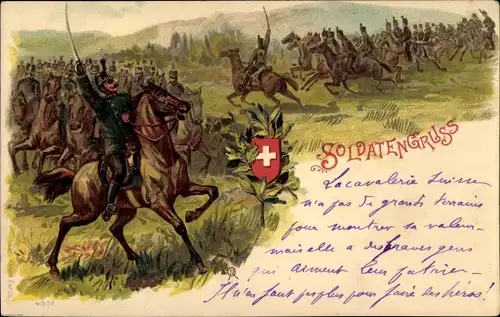 SOLDATENGRUSS
La cavalerie Suisse
n'a pas de grands terrains
pour montrer sa valeur
mais elle a des braves gens
qui aiment leur patrie –
Il n'en faut pas plus pour faire des héros!
4001.